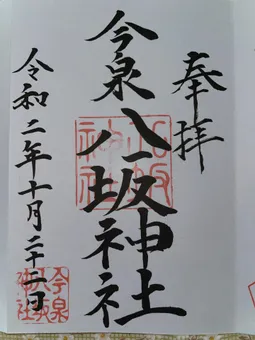 奉拝
今泉八坂神社
令和二年十月二十二日
今泉
八坂
神社